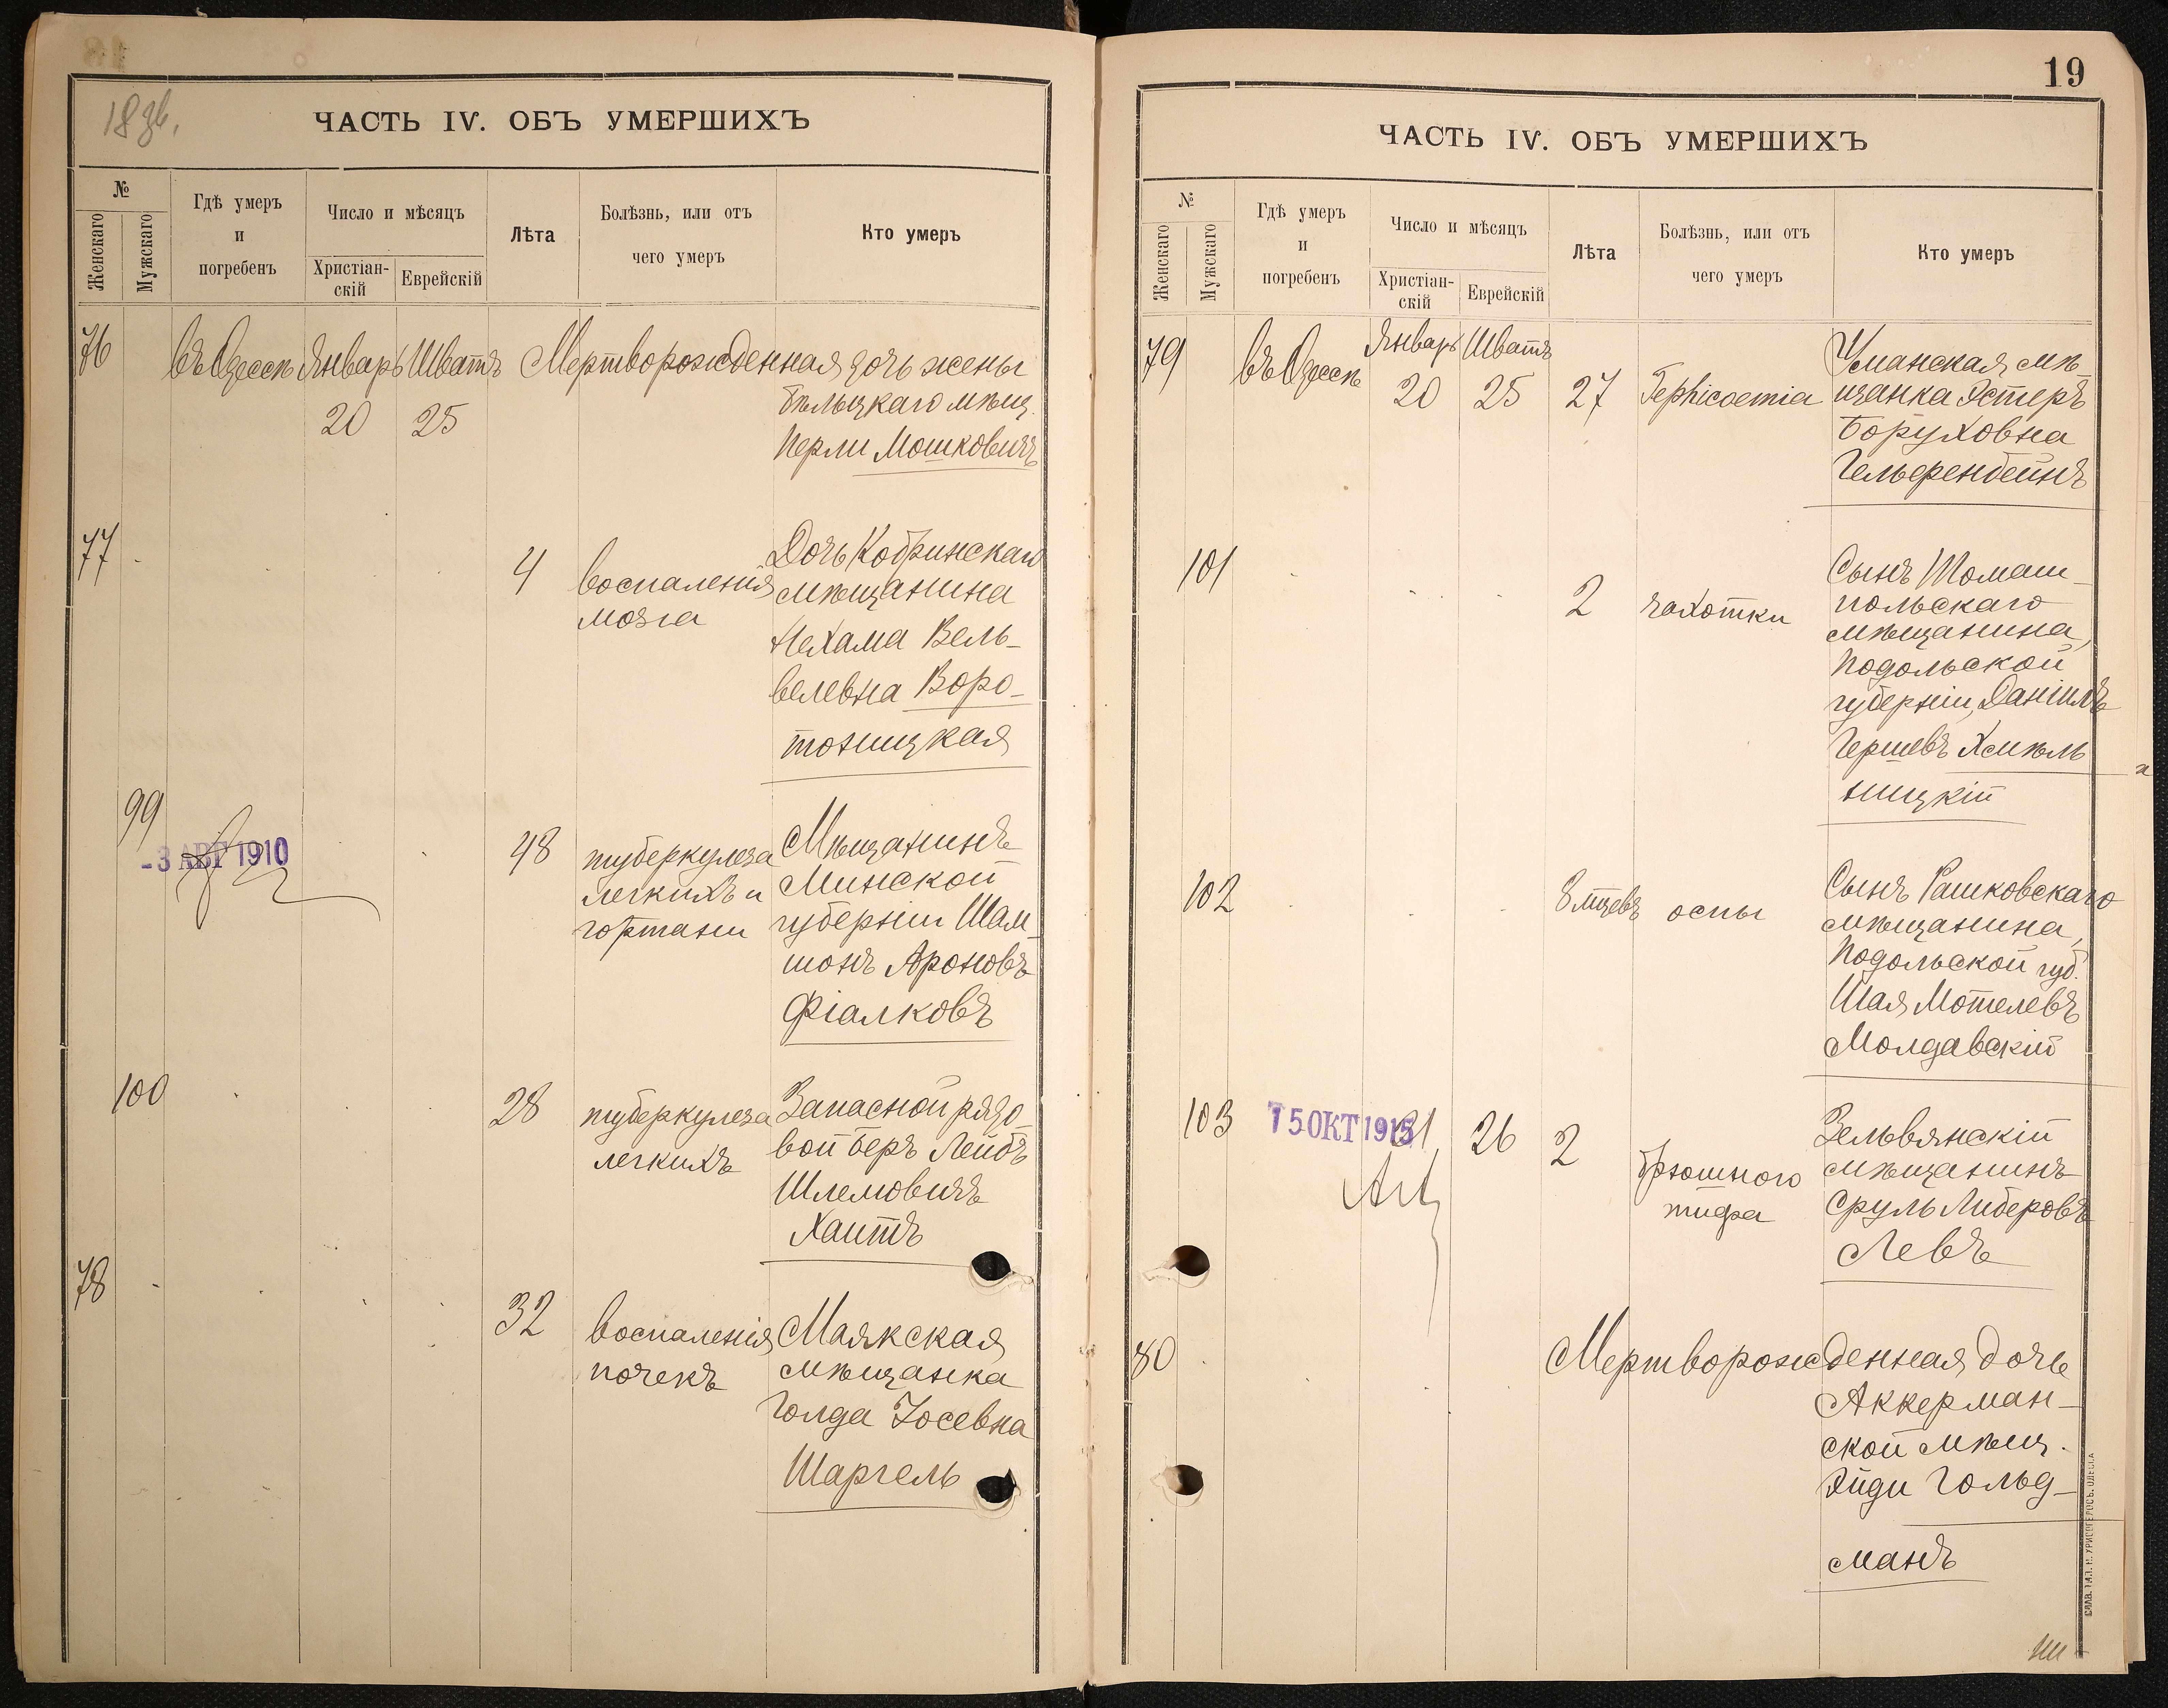 18 об.
ЧАСТЬ IV. ОБЪ УМЕРШИХЪ
№
Женскаго
Мужскаго
Гдѣ умеръ
и
погребенъ
Число и мѣсяцъ
Христіан-
скій
Еврейскій
Лѣта
Болѣзнь, или отъ
чего умеръ
Кто умеръ
76 въ Одессѣ Январь Шватъ Мертворожденная дочь жены
20 25
Бѣльцкаго мѣщ.
Перли Мошковичъ
77
4
воспаленія
мозга
Дочь Кобринскаго
мѣщанина
Нехама Вель-
велевна Воро-
тницкая
99
-3 АВГ 1910
48
туберкулеза
легкихъ и
гортани
Мѣщанинъ
Минской
губерніи Шам-
шонъ Ароновъ
Фіалковъ
100
28
туберкулеза
легкихъ
Запасной рядо-
вой Беръ Лейбъ
Шлемовичъ
Хаитъ
78
32
воспаленія
почекъ
Маякская
мѣщанка
Голда Іосевна
Шаргель
19
ЧАСТЬ IV. ОБЪ УМЕРШИХЪ
№
Женскаго
Мужскаго
Гдѣ умеръ
и
погребенъ
Число и мѣсяцъ
Христіан-
скій
Еврейскій
Лѣта
Болѣзнь, или отъ
чего умеръ
Кто умеръ
79 въ Одессѣ Январь Шватъ
20 25 27
Уманская мѣ-
щанка Эстеръ
Боруховна
Гельфенбейнъ
101
2
чахотки
Сынъ Томаш-
польскаго
мѣщанина,
Подольской
губерніи, Даніилъ
Гершевъ Хмѣль
ницкій
102
8 мцевъ
оспы
Сынъ Рашковскаго
мѣщанина,
Подольской губ.
Шая Мотелевъ
Молдавскій
103
15 ОКТ 1915
21 26 2
брюшного
тифа
Зельвянскій
мѣщанинъ
Сруль Либеровъ
Левъ
80
Мертворожденная дочь
Аккерман-
ской мѣщ.
Эйди Гольд-
манъ
СЛАВ. ТИП. Н. ХРИСОГЕЛОСЪ. ОДЕССА